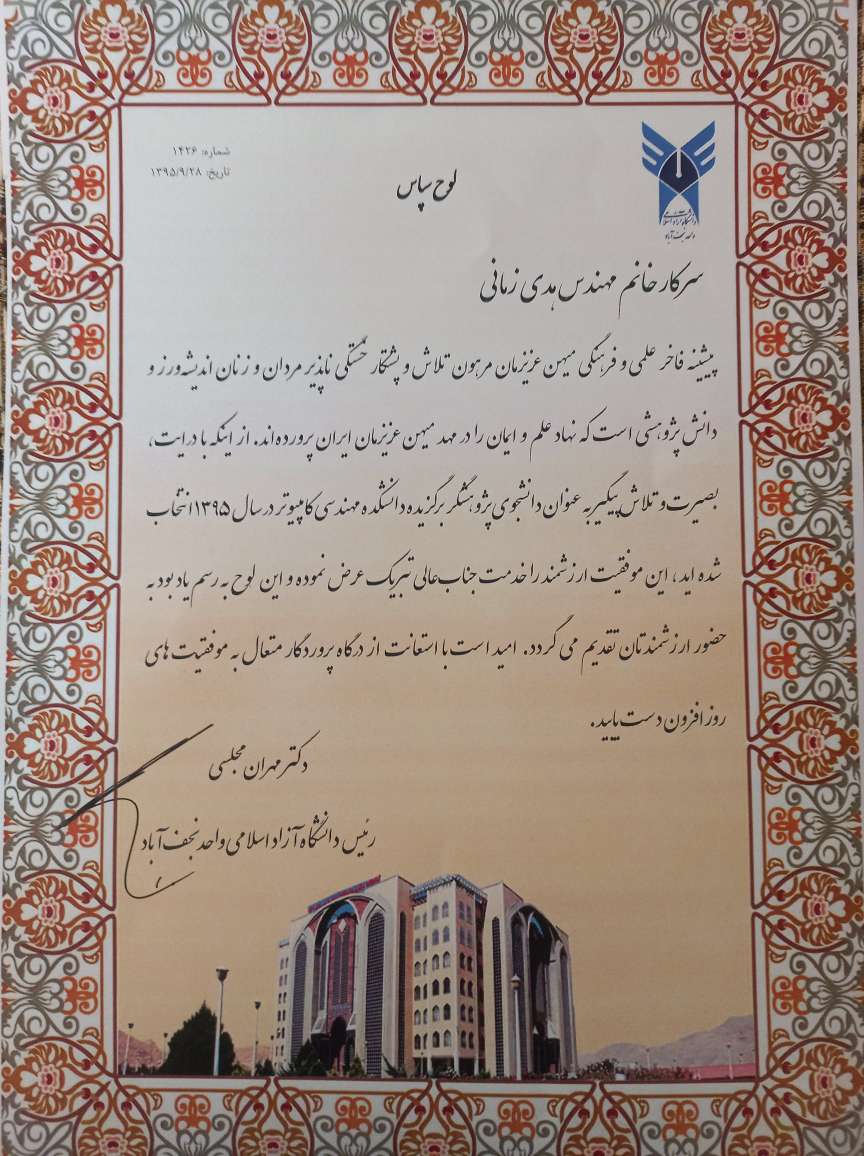 شماره: ۱۴۲۶
تاریخ: ۱۳۹۵/۹/۲۸
لوح سپاس
دانشگاه آزاد اسلامی
واحد نجف آباد
سرکار خانم مهندس هدی زمانی
پیشینه فاخر علمی و فرهنگی میهن عزیزمان مرهون تلاش و پشتکار خستگی ناپذیر مردان و زنان اندیشه‌ورز و
دانش پژوهشی است که نهاد علم و ایمان را در مهد میهن عزیزمان ایران پرورده‌اند. از اینکه با درایت،
بصیرت و تلاش پیگیر به عنوان دانشجوی پژوهشگر برگزیده دانشکده مهندسی کامپیوتر در سال ۱۳۹۵ انتخاب
شده اید، این موفقیت ارزشمند را خدمت جناب‌عالی تبریک عرض نموده و این لوح به رسم یادبود به
حضور ارزشمندتان تقدیم می گردد. امید است با استعانت از درگاه پروردگار متعال به موفقیت های
روزافزون دست یابید.
دکتر مهران مجلسی
رئیس دانشگاه آزاد اسلامی واحد نجف آباد